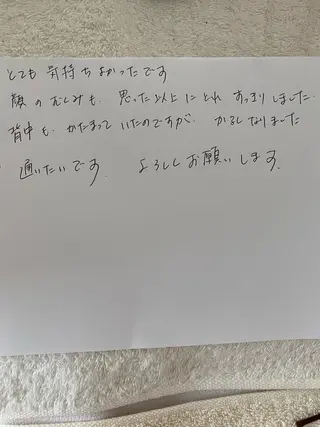 とても 気持ちよかったです
顔の むくみも、思った以上に とれ すっきりしました.
背中も. かたまって いたのですが、 かるくなりました
通いたいです. よろしく お願いします.